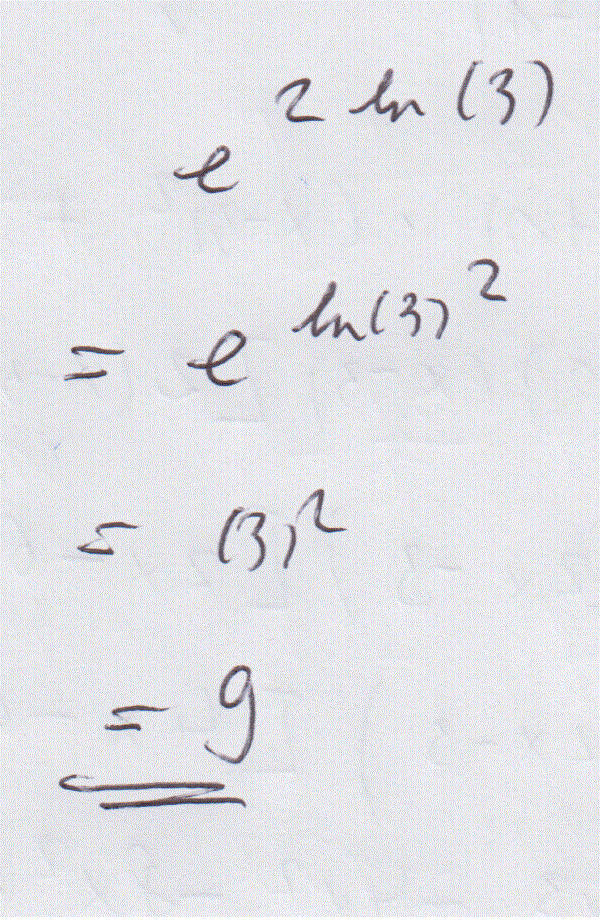 e^{2 ln(3)}
= e^{ln(3)^2}
= (3)^2
= 9